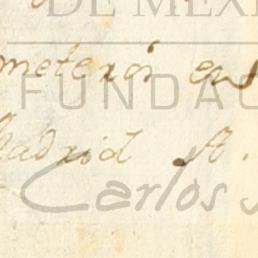 DE MÉXI
meterói en
FUNDAC
Madrid A.
Carlos